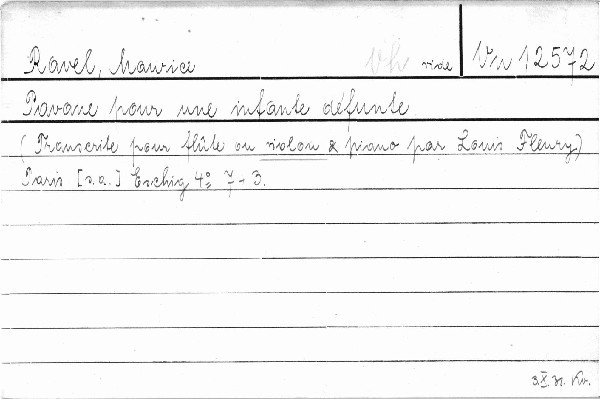 Ravel, Maurice Vh vide Vn 12572
Pavane pour une infante défunte
(Transcrite pour flûte ou violon & piano par Louis Fleury)
Paris [s.a.] Eschig 4° 7-3.
3.X.31. Kv.